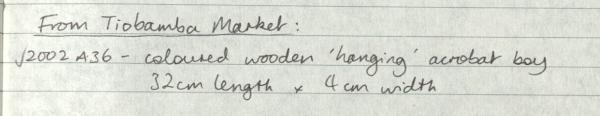 From Tiobamba Market:
√2002 A36 - coloured wooden 'hanging' acrobat boy
32cm length x 4cm width